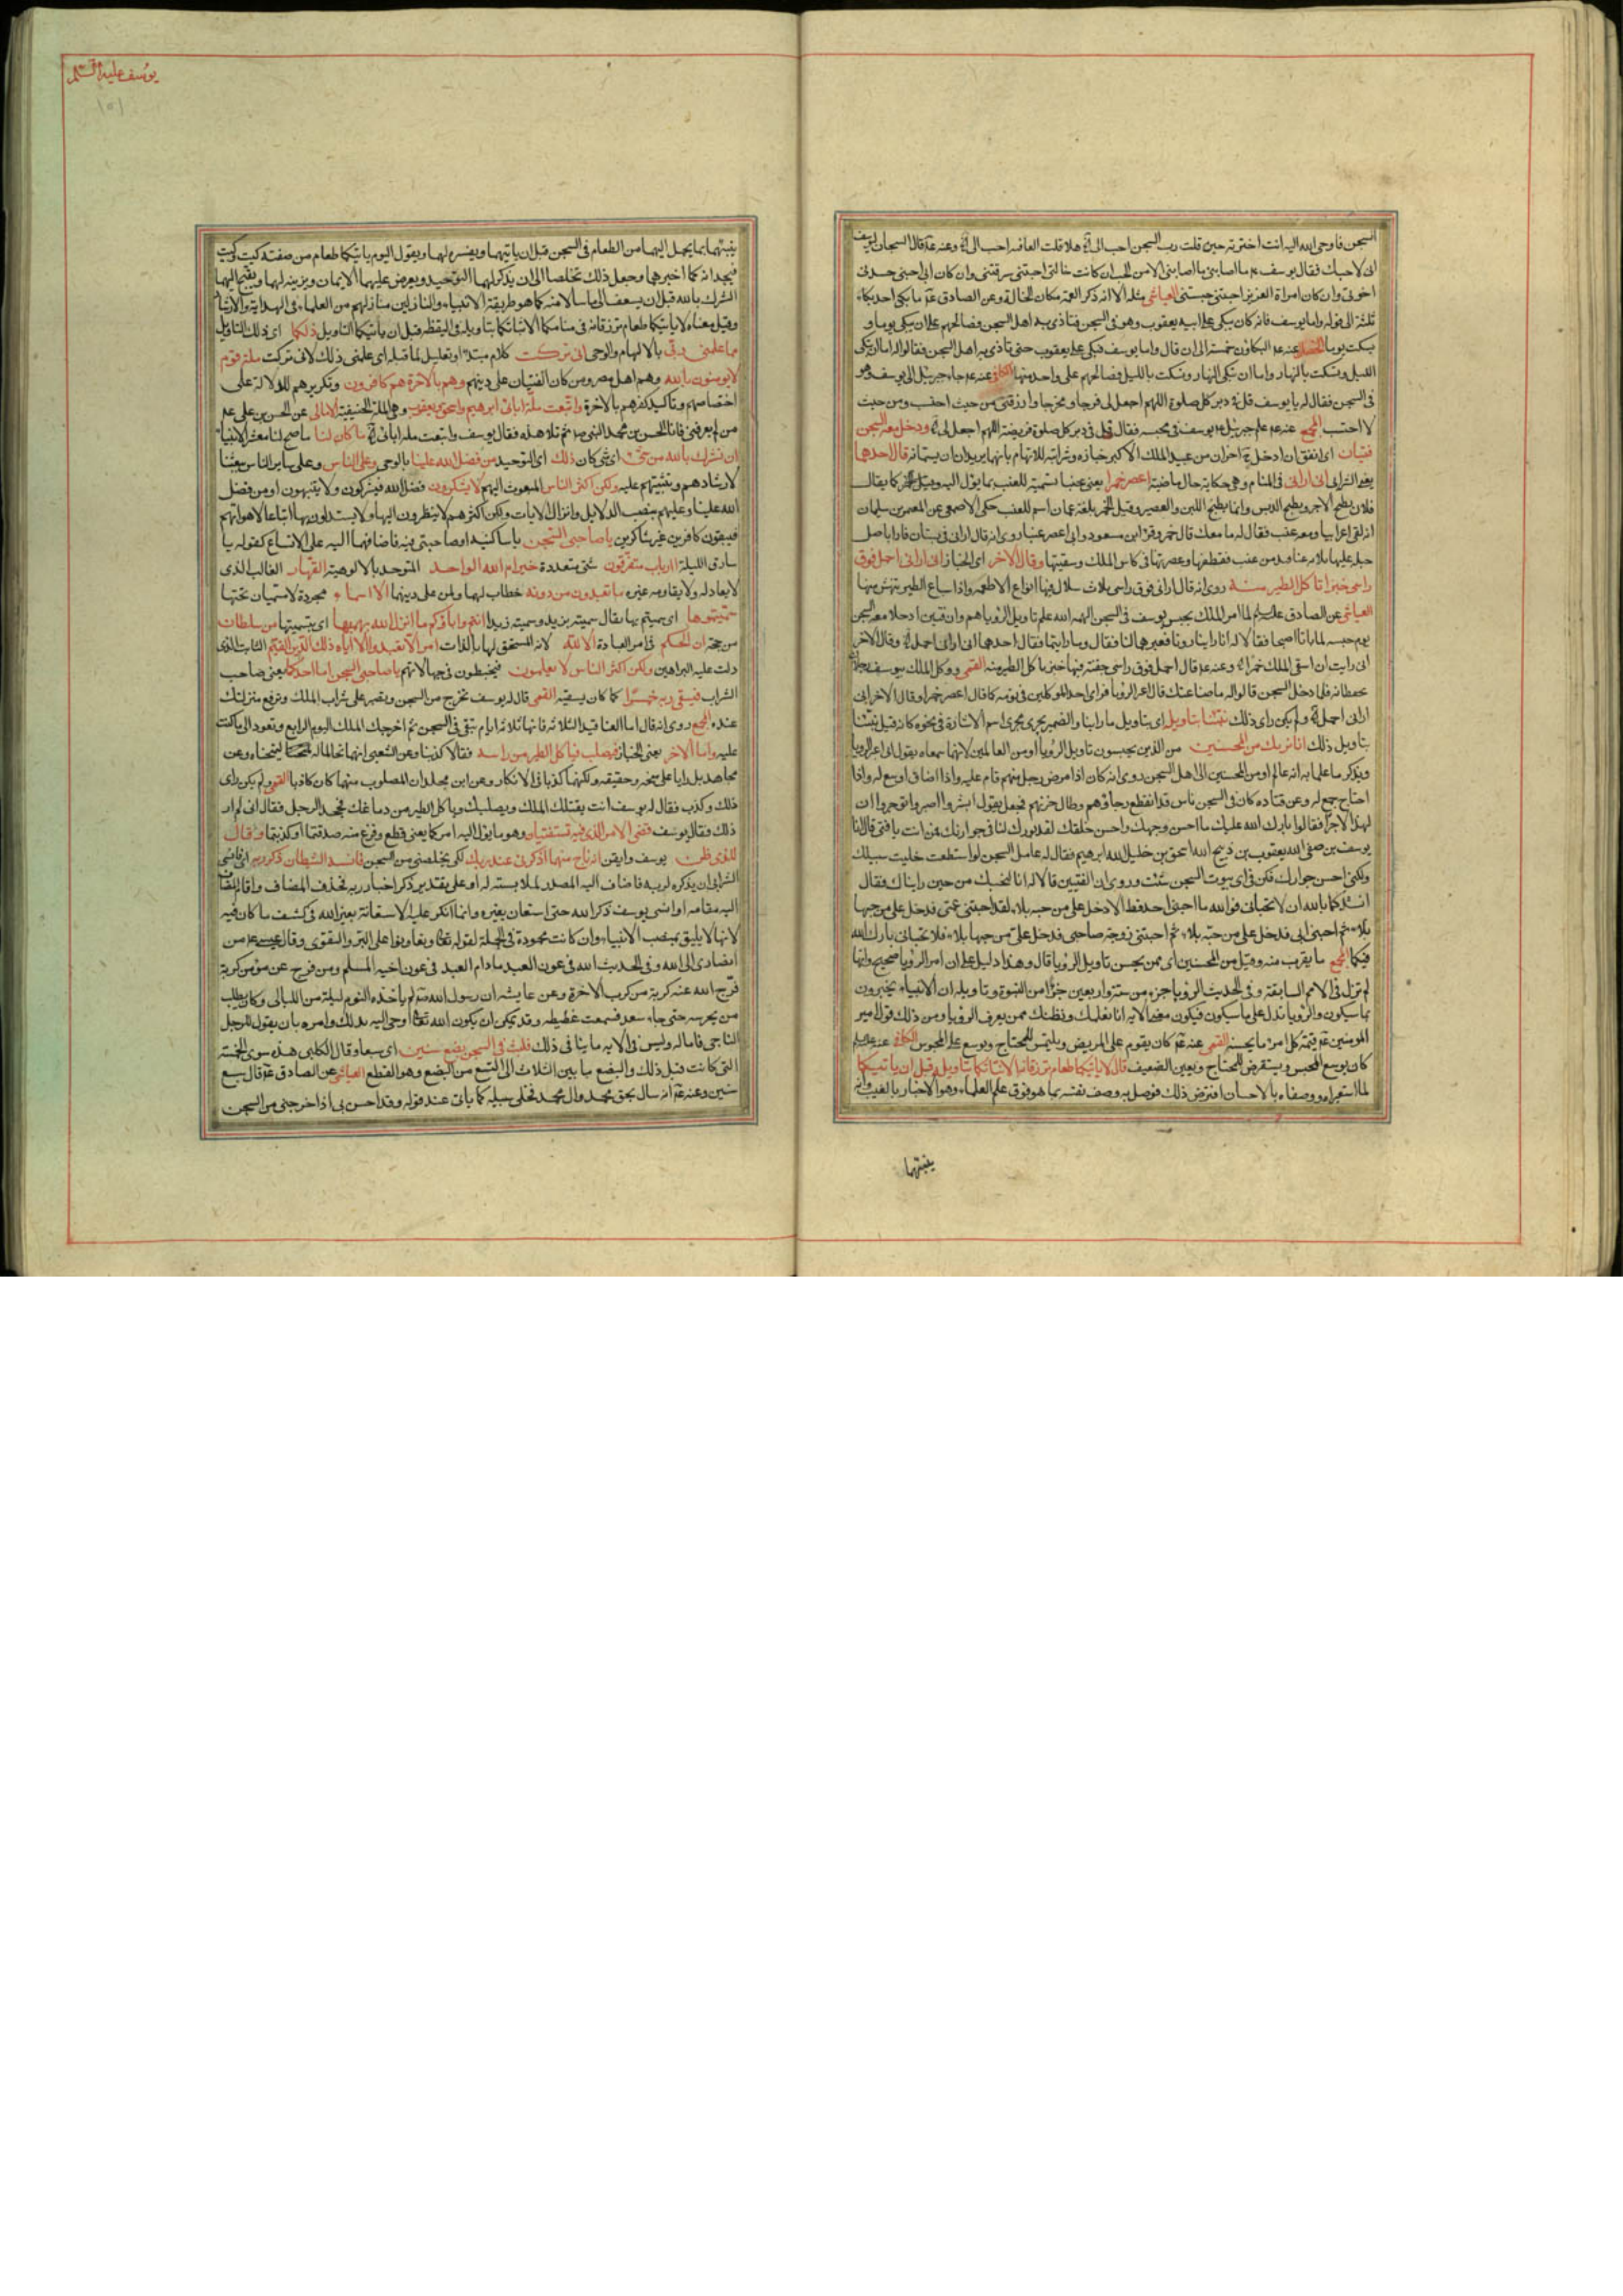 السجن فاوحى الله اليه انت اخترته حين قلت رب السجن احب الى هلا قلت العافيه احب الى وعنه قال السجان ليوسف
انى لاحبك فقال يوسف ما اصابنى الا من الحب ان كانت خالتى احبتنى سرقتنى وان كان ابى احبنى حسدنى
اخوتى وان كان امراة العزيز احبتنى حبستنى العياشى مثله الا انه ذكر العمة مكان الخالة وعن الصادق ما بكى احد بكاء
ثلثة الى قوله واما يوسف فانه كان يبكى على ابيه يعقوب وهو فى السجن فتاذى به اهل السجن فصالحهم على ان يبكى يوما و
يسكت يوما عنه البكاؤن خمسة الى ان قال واما يوسف فبكى على يعقوب حتى تاذى به اهل السجن فقالوا له اما ان تبكى
الليل وتسكت بالنهار واما ان تبكى النهار وتسكت بالليل فصالحهم على واحد منهما عنه جاء جبرئيل الى يوسف وهو
فى السجن فقال له يا يوسف قل فى دبر كل صلوة اللهم اجعل لى فرجا ومخرجا وارزقنى من حيث احتسب ومن حيث
لا احتسب المجمع عنه علم جبرئيل يوسف فى محبسه فقال قل فى دبر كل صلوة فريضة اللهم اجعل لى ودخل معه السجن
فتيان اى اتفق ان ادخل اخران من عبيد الملك الاكبر خبازه وشرابيه للاتهام بانهما يريدان ان يسماه قال احدهما
يعنى الشرابى انى ارانى فى المنام وهى حكاية حال ماضية اعصر خمرا يعنى عنبا تسمية للعنب بما يؤل اليه وقيل كما يقال
فلان يطبخ الاجر ويطبخ الدبس وانما يطبخ اللبن والعصير وقيل الخمر بلغة عمان اسم للعنب حكى الاصمعى عن المعمر بن سليمان
انه لقى اعرابيا ومعه عنب فقال له ما معك قال خمر وقرا ابن مسعود وابى اعصر عنبا روى انه قال ارانى فى بستان فاذا باصل
حبلة عليها ثلاثة عناقيد من عنب فقطعتها وعصرتها فى كاس الملك وسقيتها وقال الاخر اى الخباز انى ارانى احمل فوق
راسى خبزا تاكل الطير منه روى انه قال ارانى فوق راسى ثلاث سلال فيها انواع الاطعمه واذا سباع الطير تنهش منها
العياشى عن الصادق لما امر الملك بحبس يوسف فى السجن الهمه الله علم تاويل الرؤيا وان فتيين ادخلا معه السجن
يوم حبسه لما باتا اصبحا فقالا له انا راينا رؤيا فعبرها لنا فقال وما رايتما فقال احدهما انى ارانى احمل وقال الاخر
انى رايت ان اسقى الملك خمرا وعنه قال احمل فوق راسى جفنة فيها خبز تاكل الطير منه القمى ووكل الملك بيوسف
يحفظانه فلما دخل السجن قالوا له ما صناعتك قال اعبر الرؤيا فراى احد الموكلين فى نومه كما قال اعصر خمرا وقال الاخر انى
ارانى احمل ولم يكن راى ذلك نبئنا بتاويله اى بتاويل ما راينا والضمير يجرى مجرى اسم الاشارة فى نحوه كانه قيل نبئنا
بتاويل ذلك انا نريك من المحسنين من الذين يحسنون تاويل الرؤيا او من العالمين لانهما سمعاه يقول انى اعبر الرؤيا
ويذكر ما علما به انه عالم او من المحسنين الى اهل السجن روى انه كان اذا مرض رجل منهم قام عليه واذا اضاق اوسع له واذا
احتاج جمع له وعن قتاده كان فى السجن ناس قد انقطع رجاؤهم وطال حزنهم فجعل يقول ابشروا اصبروا توجروا ان
لهذا لاجرا فقالوا بارك الله عليك ما احسن وجهك واحسن خلقك لقد بورك لنا فى جوارك فمن انت يا فتى قال انا
يوسف بن صفى الله يعقوب بن ذبيح الله اسحق بن خليل الله ابرهيم فقال له عامل السجن لو استطعت خليت سبيلك
ولكنى احسن جوارك فكن فى اى بيوت السجن شئت وروى ان الفتيين قالا له انا لنحبك من حين رايناك فقال
انشدكما بالله ان لا تحبانى فوالله ما احبنى احد قط الا دخل على من حبه بلاء لقد احبتنى عمتى فدخل على من حبها
بلاء ثم احبنى ابى فدخل على من حبه بلاء ثم احبتنى زوجة صاحبى فدخل على من حبها بلاء فلا تحبانى بارك الله
فيكما المجمع ما يقرب منه وقيل من المحسنين اى ممن يحسن تاويل الرؤيا قال وهذا دليل على ان امر الرؤيا صحيح وانها
لم تزل فى الامم السابقة وفى الحديث الرؤيا جزء من ستة واربعين جزءا من النبوة وتاويله ان الانبياء يخبرون
بما سيكون والرؤيا تدل على ما سيكون فيكون معنى الاية انا نعلمك ونظنك ممن يعرف الرؤيا ومن ذلك قول امير
المؤمنين قيمة كل امرئ ما يحسنه القمى عنه كان يقوم على المريض ويلتمس للمحتاج ويوسع على المحبوس الكافى عنه
كان يوسع المجلس ويستقرض للمحتاج ويعين الضعيف قال لا ياتيكما طعام ترزقانه الا نباتكما بتاويله قبل ان ياتيكما
لما استعبراه ووصفاه بالاحسان افترض ذلك فوصل به وصف نفسه بما هو فوق علم العلماء وهو الاخبار بالغيب وانه
ينبئهما
يوسف عليه السلم
١٥١
ينبئهما بما يحمل اليهما من الطعام فى السجن قبل ان ياتيهما ويفسره لهما ويقول اليوم ياتيكما طعام من صفته كيت وكيت
فيجدانه كما اخبرهما وجعل ذلك تخلصا الى ان يذكر لهما التوحيد ويعرض عليهما الايمان ويزينه لهما ويقبح اليهما
الشرك بالله قبل ان يسعف الى ما سالا منه كما هو طريقة الانبياء والنازلين منازلهم من العلماء فى الهداية والارشاد
وقيل معناه لا ياتيكما طعام ترزقانه فى منامكما الا نباتكما بتاويله فى اليقظة قبل ان ياتيكما التاويل ذلكما اى ذلك التاويل
مما علمنى ربى بالالهام والوحى انى تركت كلام مبتدا او تعليل لما قبله اى علمنى ذلك لانى تركت ملة قوم
لا يومنون بالله وهم اهل مصر ومن كان الفتيان على دينهم وهم بالاخرة هم كافرون وتكريرهم للدلالة على
اختصاصهم وتاكيد كفرهم بالاخرة واتبعت ملة ابائى ابرهيم واسحق ويعقوب وهى الملة الحنيفية عن الحسن بن على
من لم يعرفنى فانا الحسن بن محمد النبى ثم تلا هذه فقال يوسف واتبعت ملة ابائى ما كان لنا ما صح لنا معشر الانبياء
ان نشرك بالله من شئ اى شئ كان ذلك اى التوحيد من فضل الله علينا بالوحى وعلى الناس وعلى ساير الناس ببعثنا
لارشادهم وتثبيتهم عليه ولكن اكثر الناس المبعوث اليهم لا يشكرون فضل الله فيشركون ولا يتنبهون او من فضل
الله علينا وعليهم بنصب الدلايل وانزال الايات ولكن اكثرهم لا ينظرون اليها ولا يستدلون بها اتباعا لاهوائهم
فيبقون كافرين غير شاكرين يا صاحبى السجن يا ساكنيه او صاحبى فيه فاضافهما اليه على الاتساع كقوله يا
سارق الليلة ءارباب متفرقون شتى متعددة خير ام الله الواحد المتوحد بالالوهية القهار الغالب الذى
لا يعادله ولا يقاومه غيره ما تعبدون من دونه خطاب لهما ولمن على دينهما الا اسماء مجردة لا مسميات تحتها
سميتموها اى سميتم بها يقال سميته بزيد وسميته زيدا انتم واباؤكم ما انزل الله بها اى بتسميتها من سلطان
من حجة ان الحكم فى امر العبادة الا لله لانه المستحق لها بالذات امر الا تعبدوا الا اياه ذلك الدين القيم الثابت الذى
دلت عليه البراهين ولكن اكثر الناس لا يعلمون فيخبطون فى جهالاتهم يا صاحبى السجن اما احدكما يعنى صاحب
الشراب فيسقى ربه خمرا كما كان يسقيه القمى قال له يوسف تخرج من السجن وتصير على شراب الملك وترفع منزلتك
عنده المجمع روى انه قال اما العناقيد الثلاثة فانها ثلاثة ايام تبقى فى السجن ثم اخرجك الملك اليوم الرابع وتعود الى ما كنت
عليه واما الاخر يعنى الخباز فيصلب فتاكل الطير من راسه فقالا كذبنا وعن الشعبى انهما تحالما له ليمتحناه وعن
مجاهد بل رايا على صحة وحقيقة ولكنهما كذبا فى الانكار وعن ابن مجلد ان المصلوب منهما كان كاذبا القمى ولم يكن راى
ذلك وكذب فقال له يوسف انت يقتلك الملك ويصلبك وياكل الطير من دماغك فجحد الرجل فقال انى لم ار
ذلك فقال يوسف قضى الامر الذى فيه تستفتيان وهو ما يؤل اليه امركما يعنى قطع وفرغ منه صدقتما او كذبتما وقال
للذى ظن يوسف وايقن انه ناج منهما اذكرنى عند ربك لكى يخلصنى من السجن فانسه الشيطان ذكر ربه اى فانسى
الشرابى ان يذكره لربه فاضاف اليه المصدر لملابسته له او على تقدير ذكر اخبار ربه فحذف المضاف واقام المضاف
اليه مقامه او انسى يوسف ذكر الله حتى استعان بغيره وانما انكر عليه الاستعانة بغير الله فى كشف ما كان فيه
لانها لا يليق بمنصب الانبياء وان كانت محمودة فى الجملة لقوله تعالى وتعاونوا على البر والتقوى وقال عيسى من
انصارى الى الله وفى الحديث الله فى عون العبد ما دام العبد فى عون اخيه المسلم ومن فرج عن مؤمن كربة
فرج الله عنه كربة من كرب الاخرة وعن عايشه ان رسول الله لم ياخذه النوم ليلة من الليالى وكان يطلب
من يحرسه حتى جاء سعد فسمعت غطيطه وقد يمكن ان يكون الله تعالى اوحى اليه بذلك وامره بان يقول للرجل
الناجى فاما له وليس فى الاية ما ينافى ذلك فلبث فى السجن بضع سنين اى سبعا وقال الكلبى هذه سوى الخمسة
التى كانت قبل ذلك والبضع ما بين الثلاث الى التسع من البضع وهو القطع العياشى عن الصادق قال سبع
سنين وعنه انه سال بحق محمد وال محمد فخلى سبيله كما ياتى عند قوله وقد احسن بى اذ اخرجنى من السجن